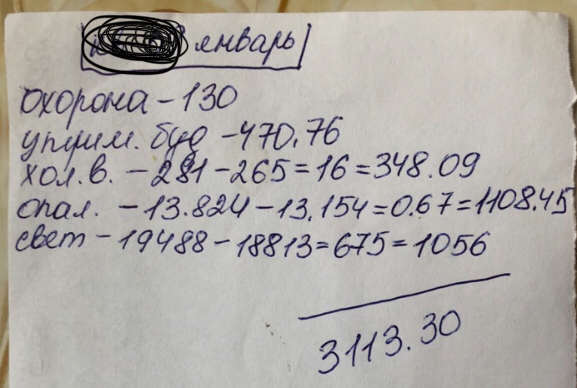 январь
охорона - 130
буд - 470.76
хол. в. - 281 - 265 = 16 = 348.09
опал. - 13.824 - 13.154 = 0.67 = 1108.45
свет - 19488 - 18813 = 675 = 1056
3113.30